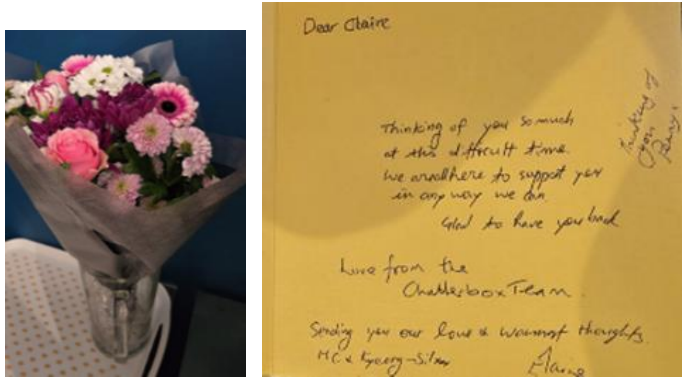 Dear Claire
Thinking of you so much
at this difficult time.
We are all here to support you
in any way we can.
Glad to have you back
Love from the
Chatterbox Team.
Sending you our love & warmest thoughts.
MC &
Elaine
Thinking of
you
Penny x